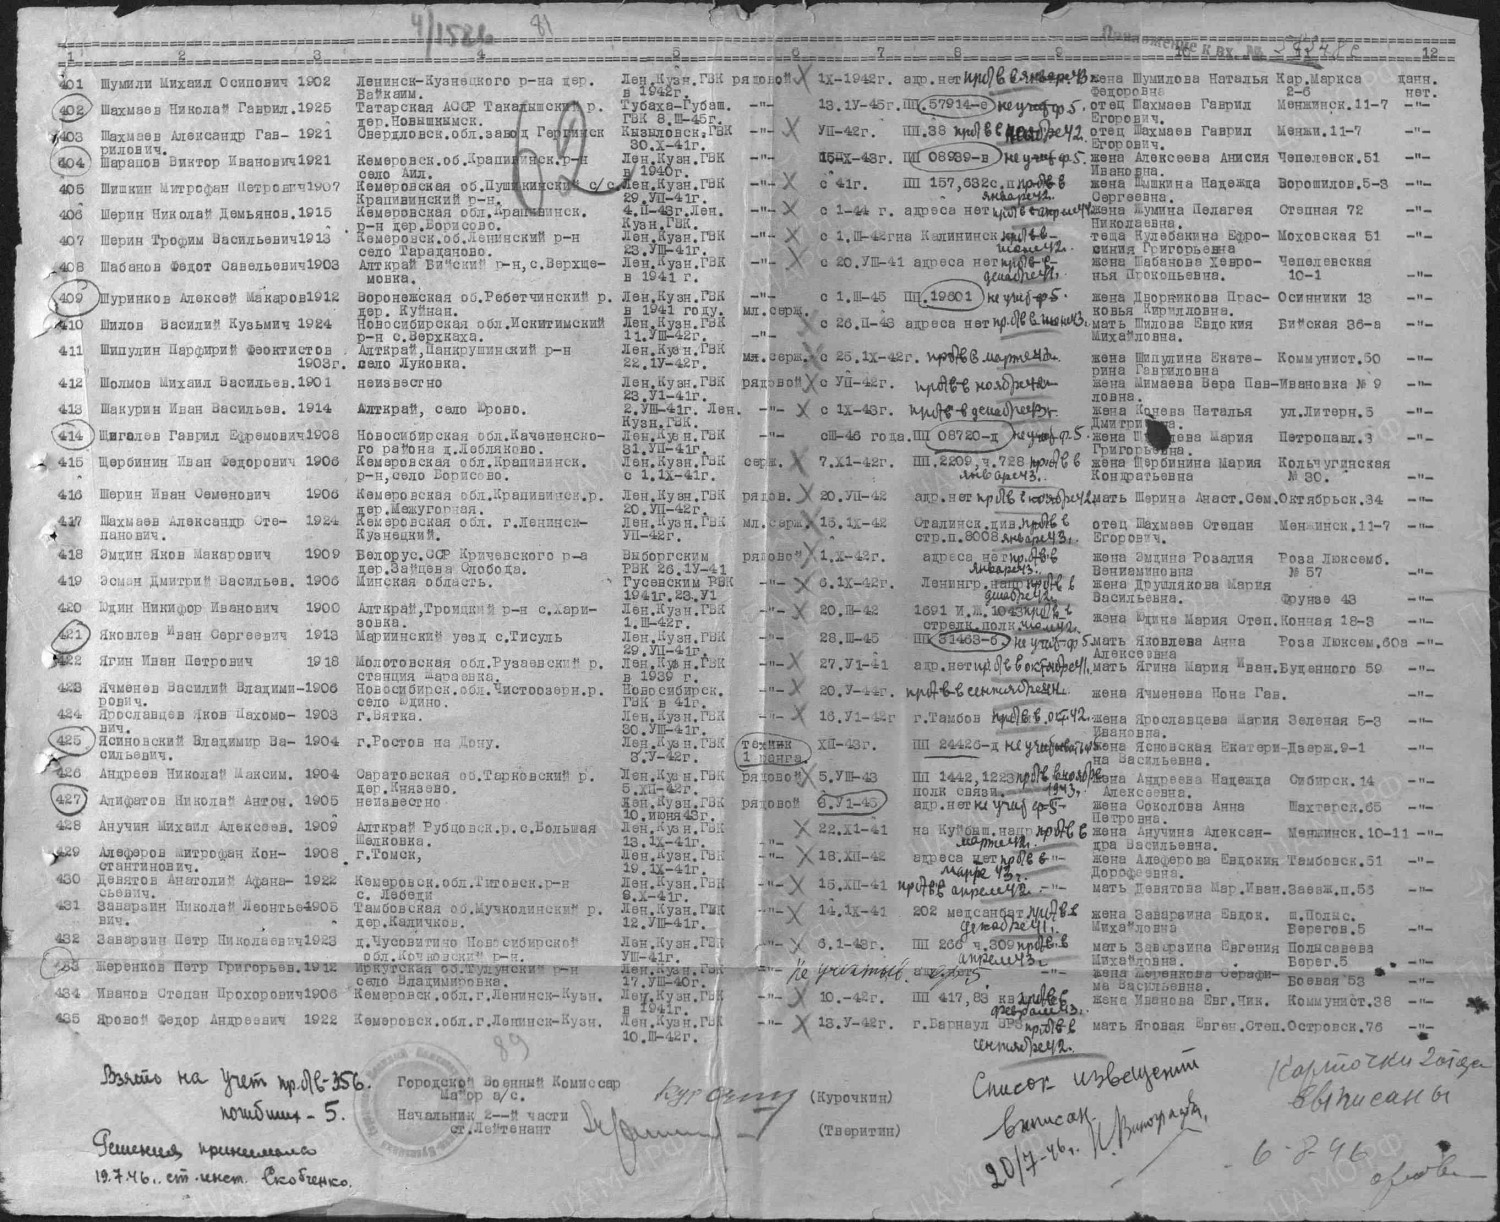 4/1586 81
Приложение к вх. №
1 2 3 4 5 6 7 8 9 10 12
401 Шумили Михаил Осипович 1902 Ленинск-Кузнецкого р-на дер. Лен.Кузн.ГВК рядовой X 1X-1942г. адр.нет пр.б/в в январе 43г. жена Шумилова Наталья Кар.Маркса данн.
Байкаим. в 1942г. Федоровна 2-6 нет.
402 Шахмаев Николай Гаврил.1925 Татарская АССР Такадышский р. Тубаха-Губаш. -"- 13.1У-45г. ПП.57914-с не учит ф.5. отец Шахмаев Гаврил Менжинск.11-7 -"-
дер.Новышкымск. ГВК 8.Ш-45г. Егорович.
403 Шахмаев Александр Гав- 1921 Свердловск.обл.завод Гергинск Кызыловск.ГВК -"- X УП-42г. ПП.38 пр.б/в в ноябре 42. отец Шахмаев Гаврил Менжи.11-7 -"-
рилович. 30.Х-41г. Егорович.
404 Шарапов Виктор Иванович1921 Кемеровск.об.Крапивинск.р-н Лен.Кузн.ГВК -"- ПП 08939-в не учит ф.5. жена Алексеева Анисия Чепелевск.51 -"-
село Аил. в 1940г. Ивановна.
405 Шишкин Митрофан Петрович1907 Кемеровская об.Пушкинский с/с. Лен.Кузн.ГВК -"- X с 41г. ПП 157,632с.п пр.б/в в жена Шышкина Надежда Ворошилов.5-3 -"-
Крапивинский р-н. 29.УП-41г. январе 42. Сергеевна.
406 Шерин Николай Демьянов.1915 Кемеровская обл.Крапивинск. 4.П-43г.Лен. -"- X с 1-44 г. адреса нет пр.б/в в апреле 44. жена Жумина Пелагея Степная 72 -"-
р-н дер.Борисово. Кузн.ГВК. Николаевна.
407 Шерин Трофим Васильевич1913 Кемеровск.об.Ленинский р-н Лен.Кузн.ГВК -"- X с 1.Ш-42г на Калининск пр.б/в в теща Кулебекина Ефро- Моховская 51 -"-
село Тараданово. 23.УШ-41г. июне 42. синия Григорьевна
408 Шабанов Федот Савельевич1903 Алткрай Бийский р-н,с.Верхше- Лен.Кузн.ГВК -"- X с 20.УШ-41 адреса нет пр.б/в в жена Шабанова Хевро- Чепелевская
мовка. в 1941 г. декабре 41. нья Прокопьевна. 10-1 -"-
409 Шуринков Алексей Макаров1912 Воронежская об.Ребетчинский р. Лен.Кузн.ГВК -"- с 1.Ш-45 ПП.19601 не учит ф.5. жена Дворникова Прас- Осинники 13 -"-
дер. Куйнан. в 1941 году. мл.серж. ковья Кирилловна.
410 Шилов Василий Кузьмич 1924 Новосибирская обл.Искитимский Лен.Кузн.ГВК X с 26.П-43 адреса нет пр.б/в в июне 43. мать Шилова Евдокия Бийская 36-а -"-
р-н с.Верхкаха. 11.УШ-42г. -"- Михайловна.
411 Шипулин Парфирий Феоктистов Алткрай,Панкрушинский р-н Лен.Кузн.ГВК мл.серж. X с 25.1Х-42г. пр.б/в в марте 42г. жена Шипулина Екате- Коммунист.50 -"-
1903г. село Луковка. 22.1У-42г. рина Гавриловна
412 Шолмов Михаил Васильев.1901 неизвестно Лен.Кузн.ГВК рядовой X с УП-42г. пр.б/в в ноябре 42г. жена Мимаева Вера Пав-Ивановка № 9 -"-
23.У1-41г. ловна.
413 Шакурин Иван Васильев. 1914 Алткрай, село Юрово. 2.УШ-41г. Лен. -"- X с 1Х-43г. пр.б/в в декабре 43г. жена Конева Наталья ул.Литерн.5 -"-
Кузн.ГВК. Дмитри
414 Щигалев Гаврил Ефремович1908 Новосибирская обл.Качененско- Лен.Кузн.ГВК -"- сШ-46 года. ПП 08720-д не учит ф.5. жена Мария Петропавл.3 -"-
го района д.Лебляково. 31.УП-41г. Григорьевна.
415 Щербинин Иван Федорович 1906 Кемеровская обл.Крапивинск. Лен.Кузн.ГВК серж. X 7.Х1-42г. ПП.2209,ч.728 пр.б/в в жена Щербинина Мария Кольчугинская
р-н,село Борисово. с 1.1Х-41г. январе 43. Кондратьевна № 30. -"-
416 Шерин Иван Семенович 1906 Кемеровская обл.Крапивинск.р. Лен.Кузн.ГВК рядов. X 20.УП-42 адр.нет пр.б/в в ноябре 42. мать Шерина Анаст.Сем.Октябрьск.34 -"-
дер.Межугорная. 20.УП-42г.
417 Шахмаев Александр Сте- 1924 Кемеровская обл. г.Ленинск- Лен.Кузн.ГВК мл.серж. X 16.1Х-42 Сталинск.див. пр.б/в в отец Шахмаев Степан Менжинск.11-7 -"-
панович. Кузнецкий. УП-42г. стр.п.8008 январе 43. Егорович.
418 Эмдин Яков Макарович 1909 Белорус.ССР Кричевского р-а Выборгским рядовой X 1.Х-42г. адреса нет пр.б/в в жена Эмдина Розалия Роза Люксемб.
дер.Зайцева Слобода. РВК 26.1У-41 январе 43. Вениаминовна № 57 -"-
419 Эсман Дмитрий Васильев. 1906 Минская область. Гусевским РВК -"- X 6.1Х-42г. Ленингр.напр пр.б/в в жена Друшлякова Мария
1941г.23.У1 декабре 42. Васильевна. Фрунзе 43 -"-
420 Юдин Никифор Иванович 1900 Алткрай,Троицкий р-н с.Хари- Лен.Кузн.ГВК -"- X 20.Ш-42 1691 И.Ж.1043 пр.б/в в
зовка. 1.Ш-42г. стрелк.полк. июле 42. жена Юдина Мария Степ.Конная 18-3 -"-
421 Яковлев Иван Сергеевич 1913 Мариинский уезд с.Тисуль Лен.Кузн.ГВК -"- 28.Ш-45 ПП 31463-б. не учит ф.5. мать Яковлева Анна Роза Люксем.60а -"-
29.УП-41г. Алексеевна
422 Ягин Иван Петрович 1918 Молотовская обл.Рузаевский р. Лен.Кузн.ГВК -"- X 27.У1-41 адр.нет пр.б/в в октябре 41. мать Ягина Мария Иван.Буденного 59 -"-
станция Шараевка. в 1939 г.
423 Ячменев Василий Владими-1906 Новосибирск.обл.Чистоозерн.р. Новосибирск. -"- X 20.У-44г. пр.б/в в сентябре 44г. жена Ячменева Нона Гав. -"-
рович. село Юдино. ГВК в 41г.
424 Ярославцев Яков Пахомо- 1903 г.Вятка. Лен.Кузн.ГВК -"- X 16.У1-42г г.Тамбов пр.б/в в окт.42. жена Ярославцева Мария Зеленая 5-3 -"-
вич. 30.УШ-41г. Ивановна.
425 Ясиновский Владимир Ва- 1904 г.Ростов на Дону. Лен.Кузн.ГВК техник ХП-43г. ПП 24426-д не учитывать жена Ясновская Екатери-Дзерж.9-1 -"-
сильевич. 3.У-42г. 1 ранга. на Васильевна.
426 Андреев Николай Максим. 1904 Саратовская об.Тарковский р. Лен.Кузн.ГВК рядовой X 5.УШ-43 ПП 1442,1223 пр.б/в в ноябре жена Андреева Надежда Сибирск.14 -"-
дер.Князево. 5.ХП-42г. полк связи. 1943. Алексеевна.
427 Алифатов Николай Антон. 1905 неизвестно Лен.Кузн.ГВК рядовой 6.У1-45 адр.нет не учит ф-5- жена Соколова Анна Шахтерск.65 -"-
10.июня43г. Петровна.
428 Анучин Михаил Алексеев. 1909 Алткрай Рубцовск.р.с.Большая Лен.Кузн.ГВК X 22.Х1-41 на Куйбыш.напр пр.б/в в жена Анучина Алексан- Менжинск.10-11 -"-
Шелковка. 13.1Х-41г. марте 42. дра Васильевна.
429 Алеферов Митрофан Кон- 1908 г.Томск, Лен.Кузн.ГВК -"- X 18.ХП-42 адреса нет пр.б/в в -"- жена Алеферова Евдокия Тамбовск.51 -"-
стантинович. 19.1Х-41г. марте 43г. Дорофеевна.
430 Девятов Анатолий Афана- 1922 Кемеровск.обл.Титовск.р-н Лен.Кузн.ГВК -"- X 15.ХП-41 пр.б/в в апреле 42. -"- мать Девятова Мар.Иван.Заезж.п.56 -"-
сьевич. с. Лебеди 9.Х-41г.
431 Заварзин Николай Леонтье-1905 Тамбовская об.Мучколинский р. Лен.Кузн.ГВК -"- X 14.1Х-41 202 медсанбат пр.б/в в жена Заварзина Евдок. ш.Полыс.
вич. дер.Кадичков. 12.УШ-41г. декабре 41. Михайловна Берегов.5 -"-
432 Заварзин Петр Николаевич1923 д.Чусовитино Новосибирской Лен.Кузн.ГВК -"- X 6.1-43г. ПП 266 ч.309 пр.б/в в мать Заварзина Евгения Полысаева
обл.Кочковский р-н. УШ-41г. апреле 43г. Михайловна. Берег.5 -"-
433 Жеренков Петр Григорьев.1912 Иркутская об.Тулунский р-н Лен.Кузн.ГВК -"- не учитыв. ф.5 -"- жена Жеренкова Серафи-
село Владимировка. 17.УШ-40г. ма Васильевна. Боевая 53 -"-
434 Иванов Степан Прохорович1906 Кемеровск.обл.г.Ленинск-Кузн. Лен.Кузн.ГВК -"- X 10.-42г. ПП 417,83 кв пр.б/в в жена Иванова Евг.Ник. Коммунист.38 -"-
в 1941г. феврале 43.
435 Яровой Федор Андреевич 1922 Кемеровск.обл.г.Ленинск-Кузн. Лен.Кузн.ГВК -"- X 13.У-42г. г.Барнаул пр.б/в в мать Яровая Евген.Степ.Островск.76 -"-
10.Ш-42г. сентябре 42.
62
89
Взято на учет пр.б/в-356.
погибших - 5.
Решения принимала
19.7.46г. ст.инст. Скобченко.
Городской Военный Комиссар
Майор а/с. (Курочкин)
Начальник 2--й части
ст.Лейтенант (Тверитин)
Список извещений
выписан.
20/7-46г.
Карточки
выписаны
6-8-46